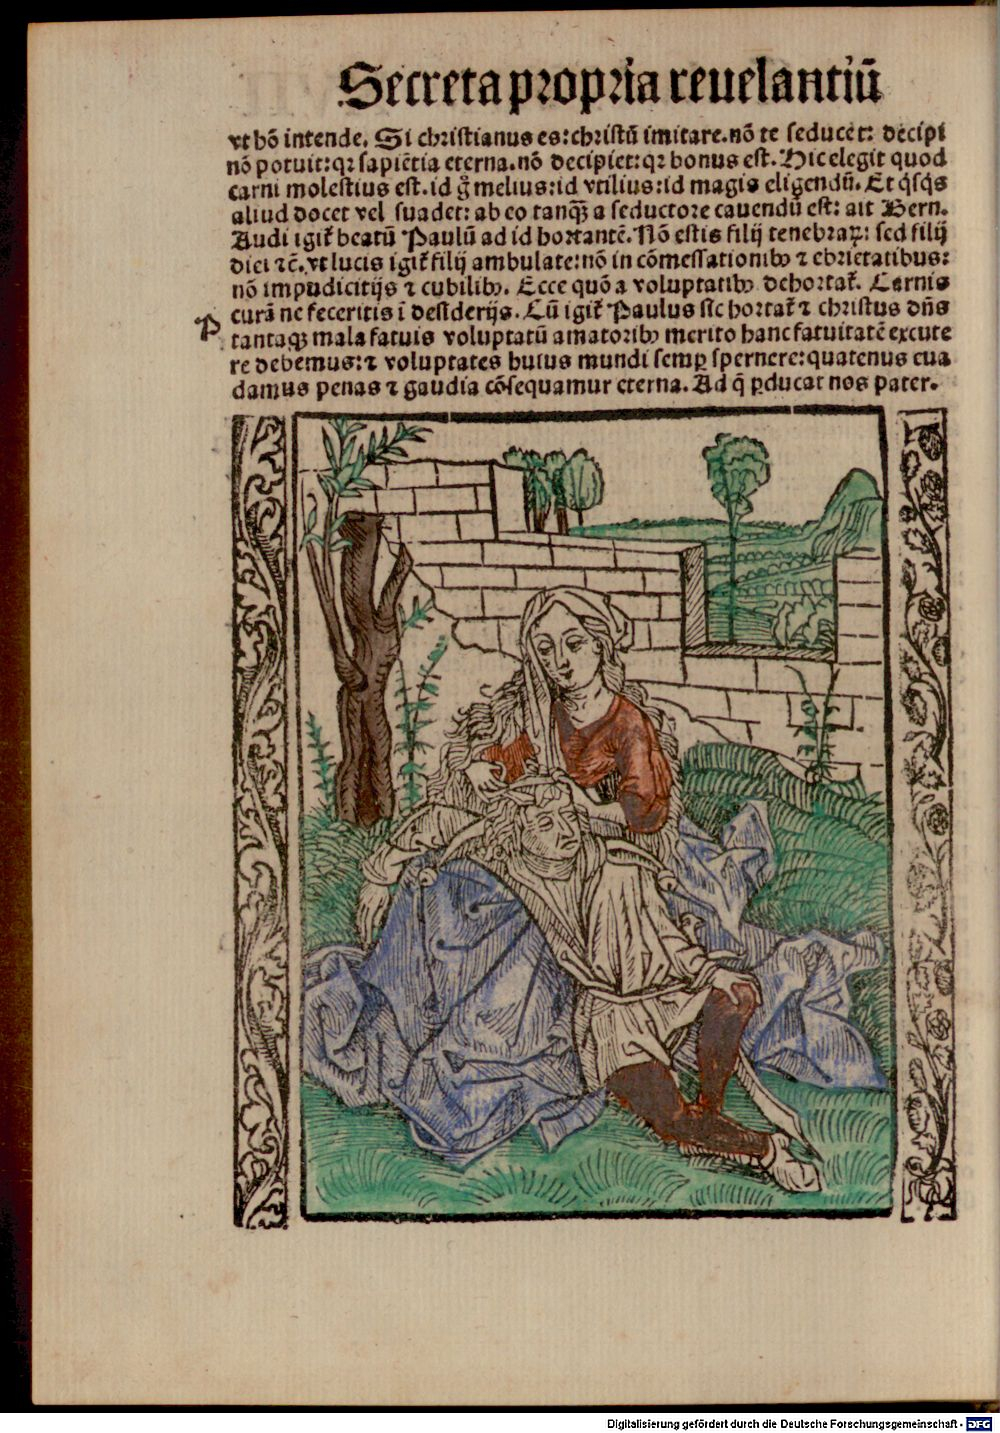 Secreta propria reuelantiū
vt hō intende. Si christianus es: christū imitare. nō te seducet: decipi
nō potuit: qꝛ sapiētia eterna. nō decipiet: qꝛ bonus est. Hic elegit quod
carni molestius est. id g̊ melius: id vtilius: id magis eligendū. Et q̇sq̇s
aliud docet vel suadet: ab eo tanq̃ꝫ a seductore cauendū est: ait Bern.
Audi igit᷑ beatū Paulū ad id hortantē. Nō estis filij tenebraꝝ: sed filij
diei ⁊ē. vt lucis igit᷑ filij ambulate: nō in cōmessationibꝰ ⁊ ebrietatibus:
nō impudicitijs ⁊ cubilibꝰ. Ecce quō a voluptatibꝰ dehortat᷑. Carnis
curā ne feceritis ī desiderijs. Cū igit᷑ Paulus sic hortat᷑ ⁊ christus dn̄s
P
tantaqꝫ mala fatuis voluptatū amatoribꝰ merito hanc fatuitatē excute
re debemus: ⁊ voluptates huius mundi semꝑ spernere: quatenus eua
damus penas ⁊ gaudia cōsequamur eterna. Ad q̄ ꝑducat nos pater.
Digitalisierung gefördert durch die Deutsche Forschungsgemeinschaft - DFG